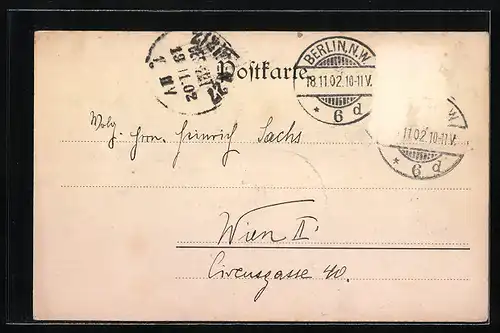 Postkarte
BERLIN.N.W.
18.11.02.10-11V.
* 6 d
11.02.10-11V.
* 6 d
Wolg. Herrn. Heinrich Sachs
Wien II.
Circusgasse 40.